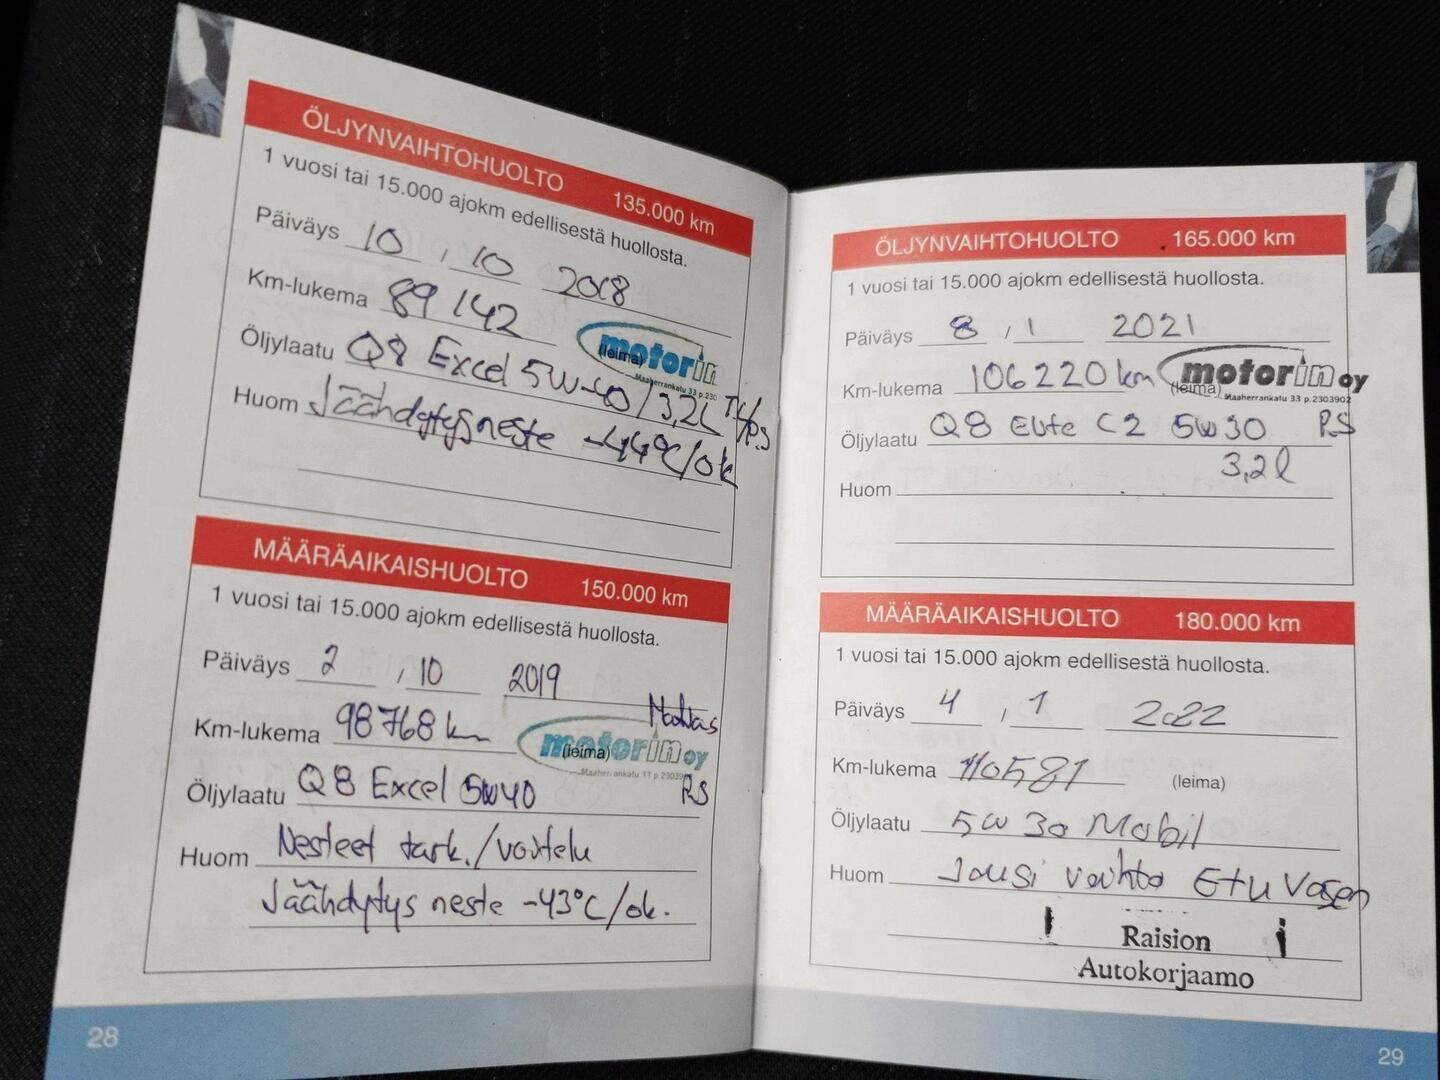 ÖLJYNVAIHTOHUOLTO 135.000 km
1 vuosi tai 15.000 ajokm edellisestä huollosta.
Päiväys 10 , 10 2018
Km-lukema 89142
motorin
(leima)
Maaherrankatu 33 p.230
Öljylaatu Q8 Excel 5W-40/3,2L
Huom Jäähdytysneste -44°C/ok
MÄÄRÄAIKAISHUOLTO 150.000 km
1 vuosi tai 15.000 ajokm edellisestä huollosta.
Päiväys 2 , 10 2019
Km-lukema 98768 km
motorin oy
(leima)
Öljylaatu Q8 Excel 5W40 RS
Huom Nesteet tark./voitelu
Jäähdytys neste -43°C/ok.
28
ÖLJYNVAIHTOHUOLTO 165.000 km
1 vuosi tai 15.000 ajokm edellisestä huollosta.
Päiväys 8 , 1 2021
Km-lukema 106220 km
motorin oy
(leima)
Maaherrankatu 33 p.2303902
Öljylaatu Q8 Elite C2 5W30 RS
3,2l
Huom
MÄÄRÄAIKAISHUOLTO 180.000 km
1 vuosi tai 15.000 ajokm edellisestä huollosta.
Päiväys 4 , 1 2022
Km-lukema 110581 (leima)
Öljylaatu 5W30 Mobil
Huom Jousi vaihto Etu Vasen
Raision
Autokorjaamo
29